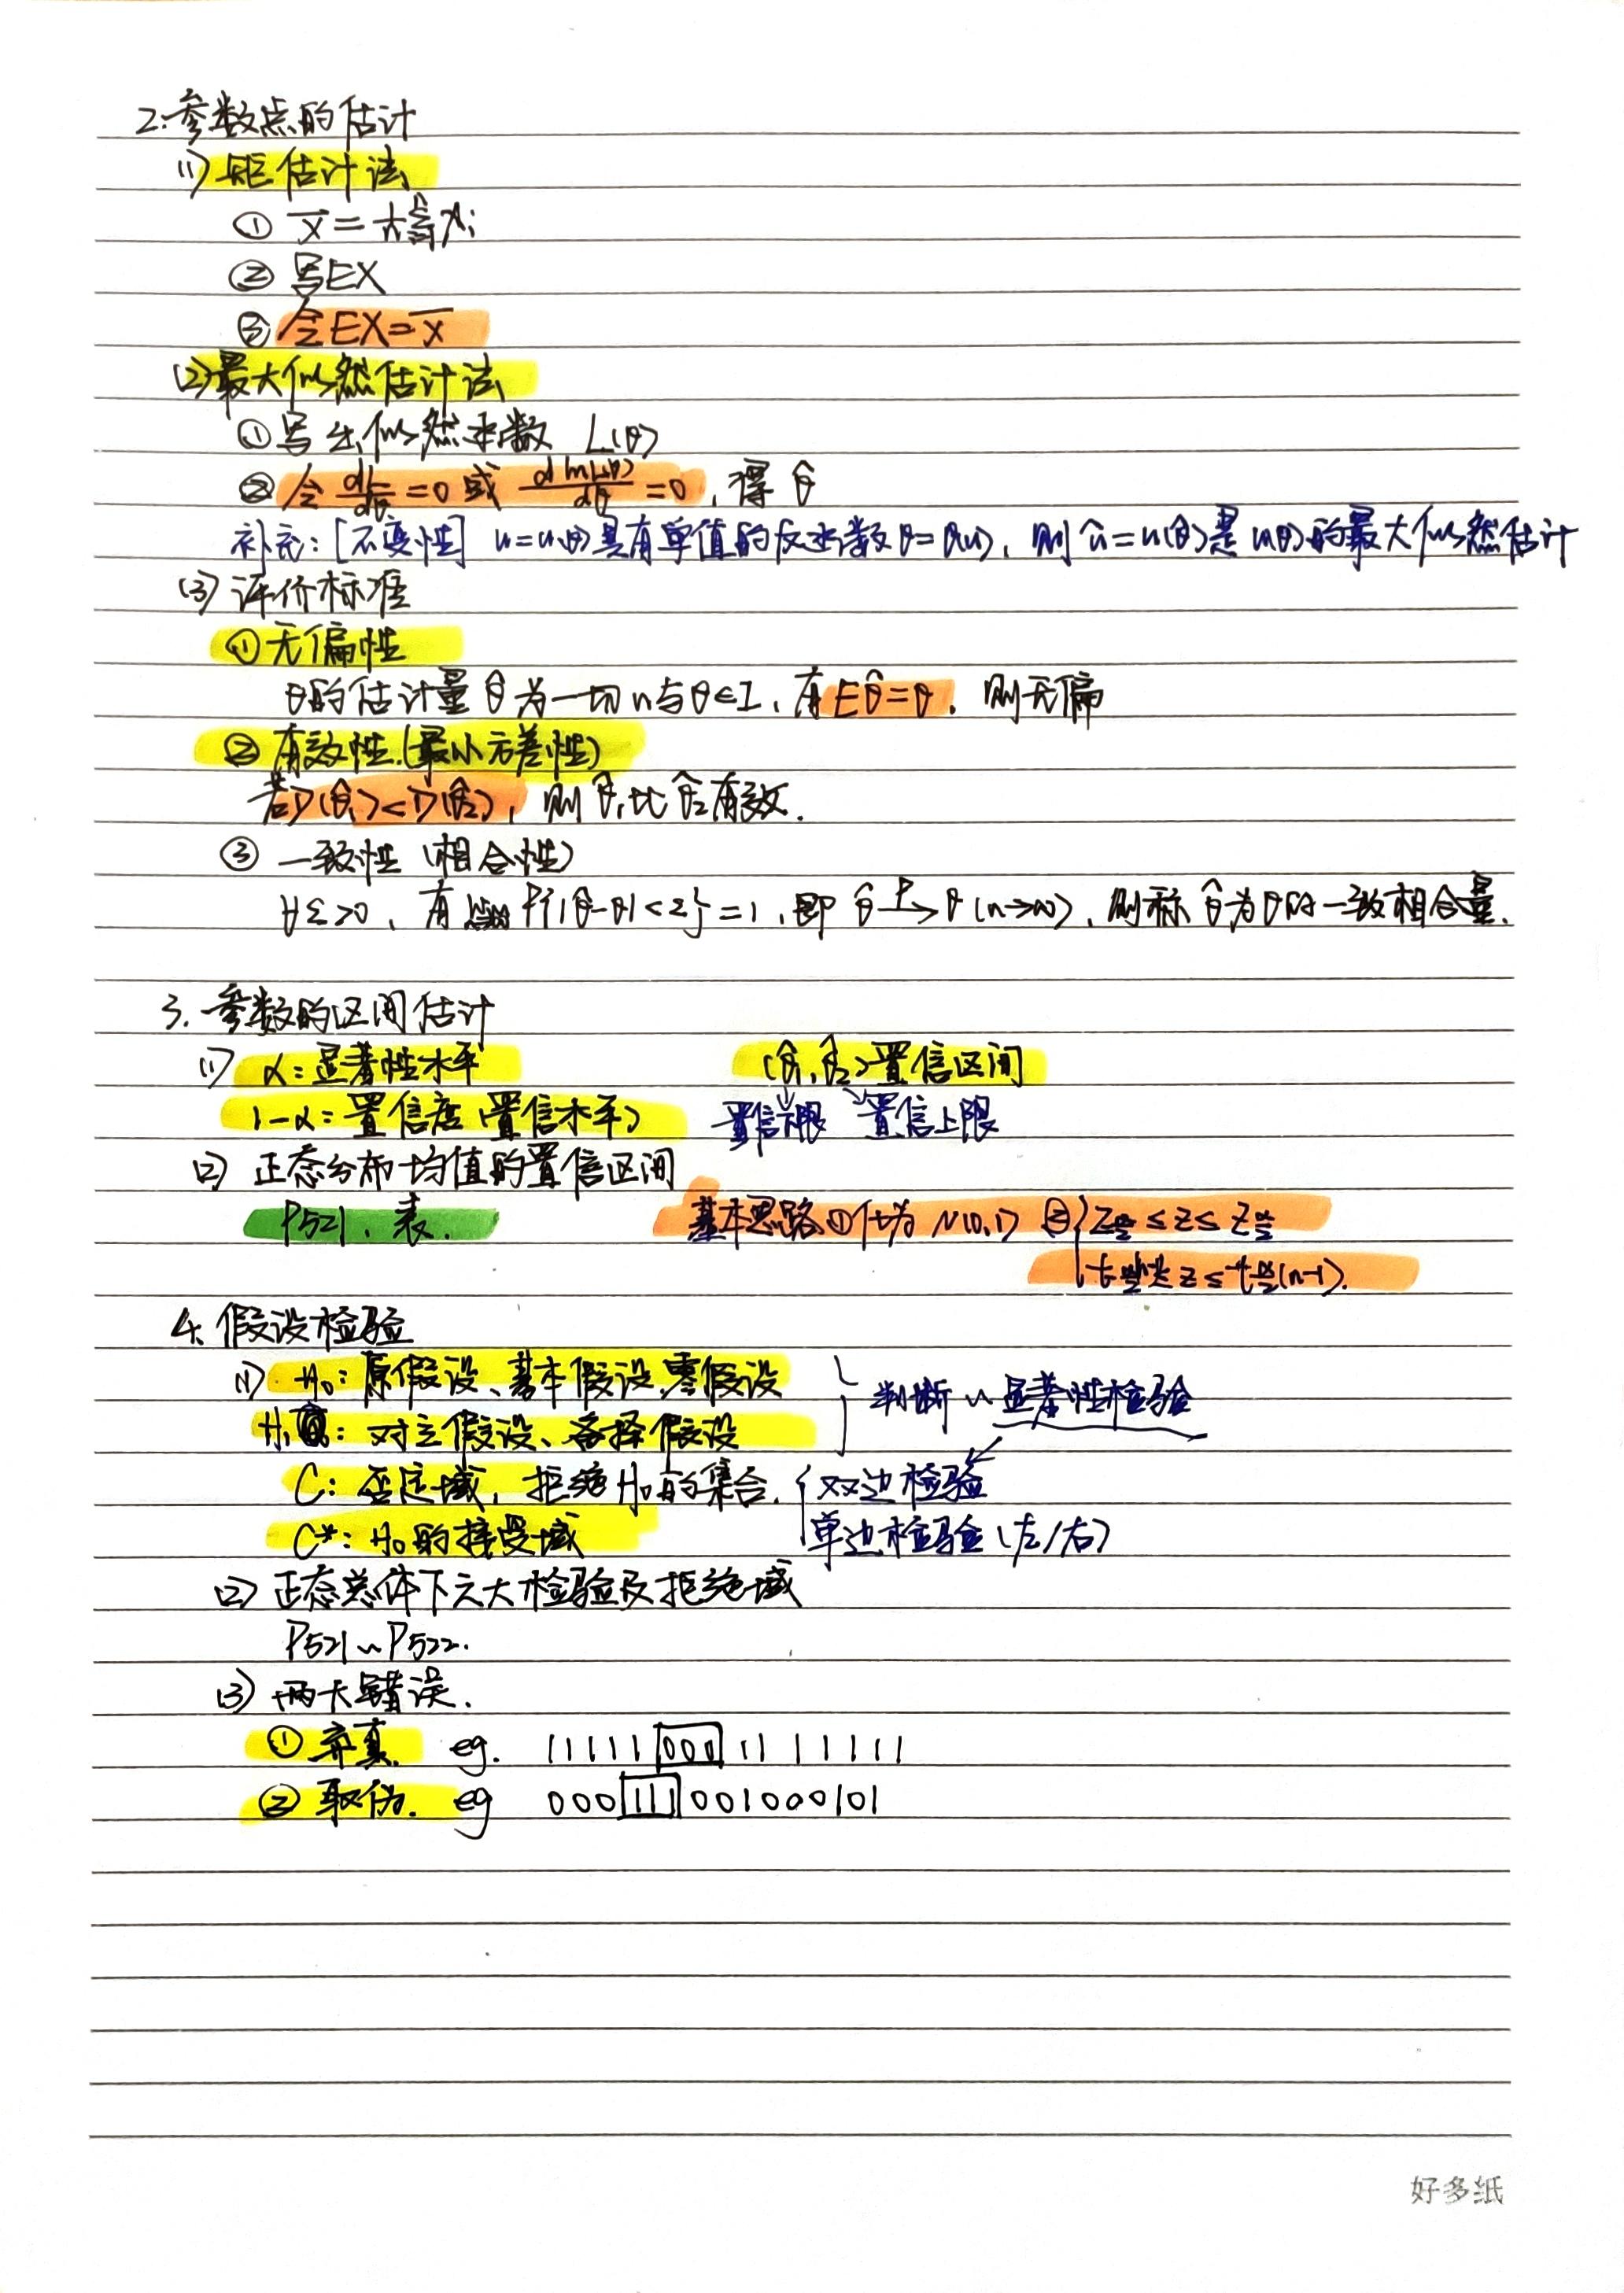 2.参数点的估计
(1) 矩估计法
① X̄ = 1/n Σᵢ₌₁ⁿ Xᵢ
② 写EX
③ 令EX=X̄
(2)最大似然估计法
①写出似然函数 L(θ)
② 令 dL/dθ =0 或 dlnL(θ)/dθ =0,得 θ̂
补充:[不变性] u=u(θ)具有单值的反函数θ=θ(u),则û=u(θ̂)是u(θ)的最大似然估计
(3) 评价标准
①无偏性
θ的估计量θ̂为一切n与θ∈I,有Eθ̂=θ,则无偏
② 有效性(最小方差性)
若D(θ̂₁)<D(θ̂₂),则θ̂₁比θ̂₂有效.
③ 一致性(相合性)
∀ε>0,有 P{|θ̂-θ|<ε}=1,即 θ̂ →ᴾ θ(n→∞),则称θ̂为θ的一致相合量.
3.参数的区间估计
(1) α:显著性水平 (θ̂₁,θ̂₂)置信区间
1-α:置信度(置信水平) 置信下限 置信上限
(2) 正态分布均值的置信区间
P521,表. 基本思路①化为N(0,1) ②{Zα/2 ≤ Z ≤ Zα/2
≤ Z ≤ tα/2(n-1).
4.假设检验
(1) H₀:原假设、基本假设、零假设 判断~显著性检验
H₁:对立假设、备择假设
C:否定域,拒绝H₀的集合. {双边检验
C*:H₀的接受域 单边检验(左/右)
(2) 正态总体下六大检验及拒绝域
P521~P522.
(3) 两大错误.
① 弃真. eg. 11111 000 1111111
② 取伪. eg 000 111 001000101
好多纸